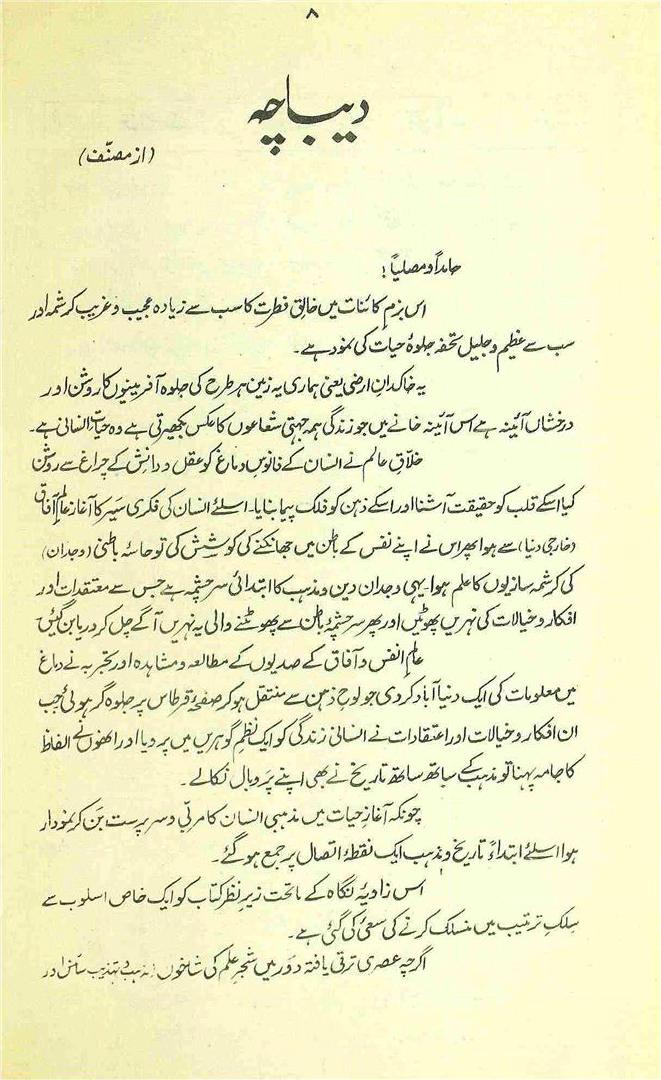 ۸
دیباچہ
(از مصنّف)
حامداً و مصلیاً!
اس بزمِ کائنات میں خالقِ فطرت کا سب سے زیادہ عجیب و غریب کرشمہ اور
سب سے عظیم و جلیل تحفہ جلوۂ حیات کی نمود ہے۔
یہ خاکدانِ ارضی یعنی ہماری یہ زمین ہر طرح کی جلوہ آفرینیوں کا روشن اور
درخشاں آئینہ ہے اس آئینہ خانے میں جو زندگی ہمہ جہتی شعاعوں کا عکس بکھیرتی ہے وہ حیاتِ انسانی ہے۔
خلّاقِ عالم نے انسان کے فانوسِ دماغ کو عقل و دانش کے چراغ سے روشن
کیا اسکے قلب کو حقیقت آشنا اور اسکے ذہن کو فلک پیما بنایا۔ اسلئے انسان کی فکری سَیر کا آغاز عالمِ آفاق
(خارجی دنیا) سے ہوا پھر اس نے اپنے نفس کے باطن میں جھانکنے کی کوشش کی تو حاسۂ باطنی (وجدان)
کی کرشمہ سازیوں کا علم ہوا۔ یہی وجدان دین و مذہب کا ابتدائی سرچشمہ ہے جس سے معتقدات اور
افکار و خیالات کی نہریں پھوٹیں اور پھر سرچشمۂ باطن سے پھوٹنے والی یہ نہریں آگے چل کر دریا بن گئیں
عالمِ انفس و آفاق کے صدیوں کے مطالعہ و مشاہدہ اور تجربہ نے دماغ
میں معلومات کی ایک دنیا آباد کردی جو لوحِ ذہن سے منتقل ہو کر صفحۂ قرطاس پر جلوہ گر ہوئی جب
ان افکار و خیالات اور اعتقادات نے انسانی زندگی کو ایک نظمِ گوہریں میں پر دیا اور انھوں نے الفاظ
کا جامہ پہنا تو مذہب کے ساتھ ساتھ تاریخ نے بھی اپنے پَر و بال نکالے۔
چونکہ آغازِ حیات میں مذہبی انسان کا مربّی و سرپرست بن کر نمودار
ہوا اسلئے ابتداءً تاریخ و مذہب ایک نقطۂ اتصال پر جمع ہو گئے۔
اس زاویۂ نگاہ کے ماتحت زیرِ نظر کتاب کو ایک خاص اسلوب سے
سِلکِ ترتیب میں منسلک کرنے کی سعی کی گئی ہے۔
اگرچہ عصری ترقی یافتہ دَور میں شجرِ علم کی شاخوں (مذہب و تہذیب سائنس اور